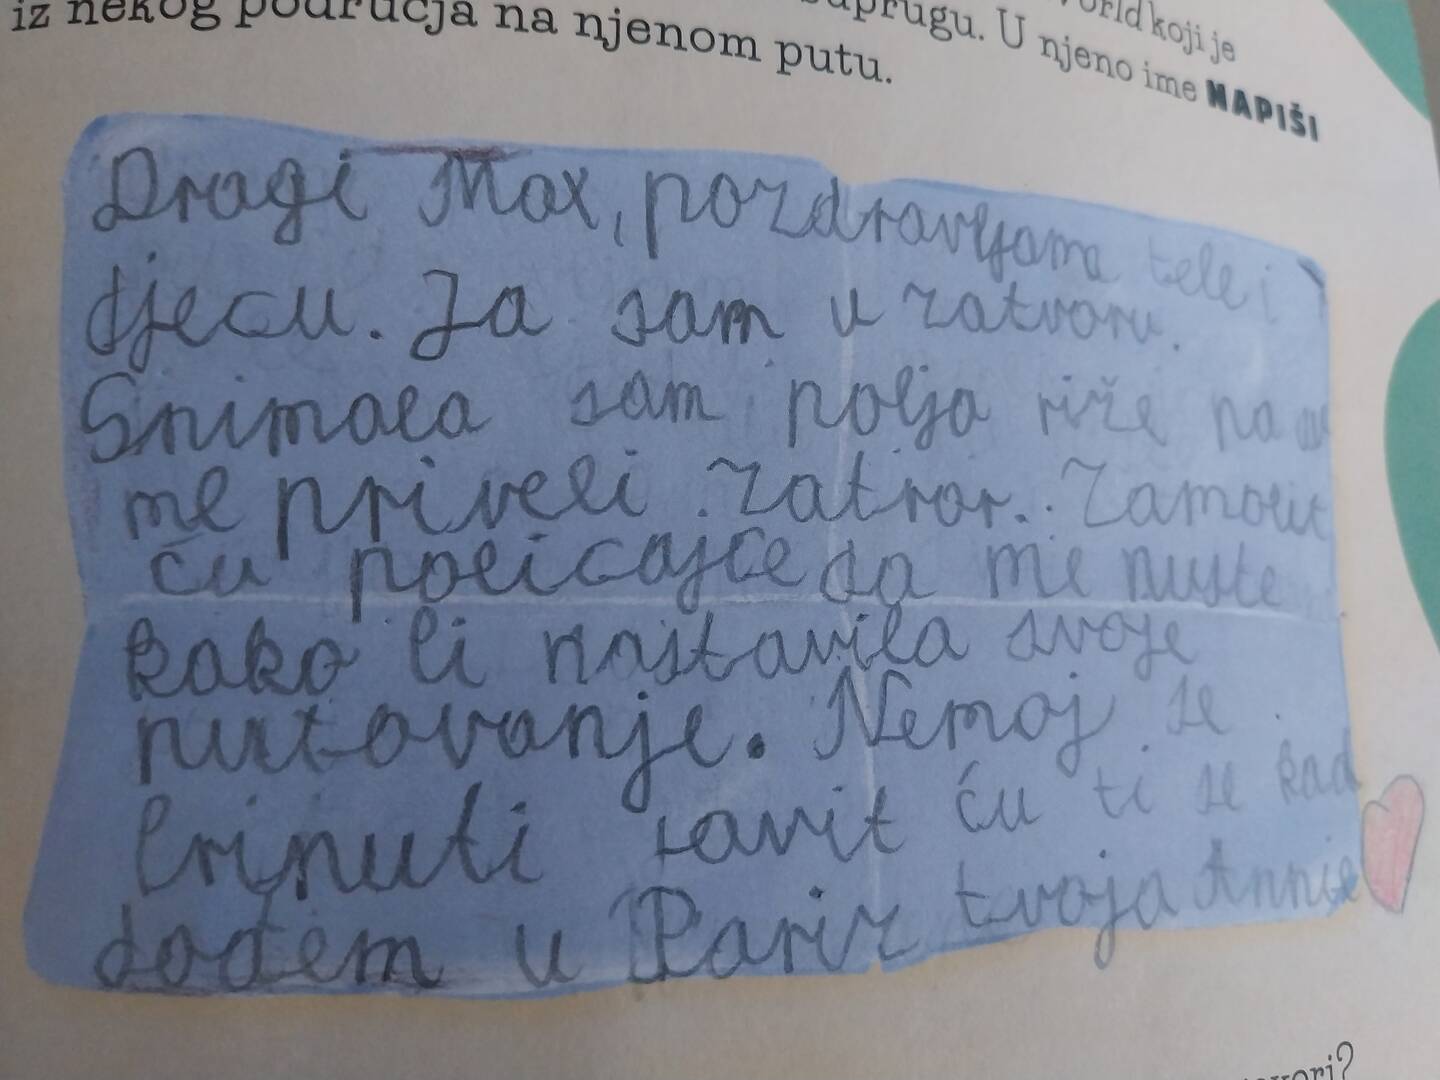 suprugu. U njeno ime NAPIŠI
koji je
iz nekog područja na njenom putu.
Dragi Max, pozdravljama tebe i
djecu. Ja sam u zatvoru.
Snimala sam polja riže pa
me priveli zatvor. Zamolit
ću policajce da me puste
kako bi nastavila svoje
putovanje. Nemoj se
brinuti javit ću ti se kad
dođem u Pariz tvoja Annie